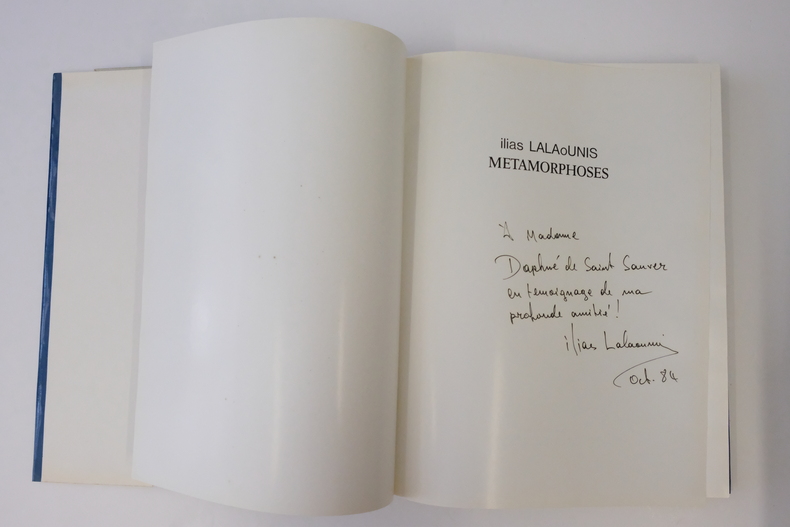 ilias LALAoUNIS
METAMORPHOSES
À Madame
Daphné de Saint Sauver
en temoignage de ma
profonde amitié !
ilias Lalaounis
Oct. 84